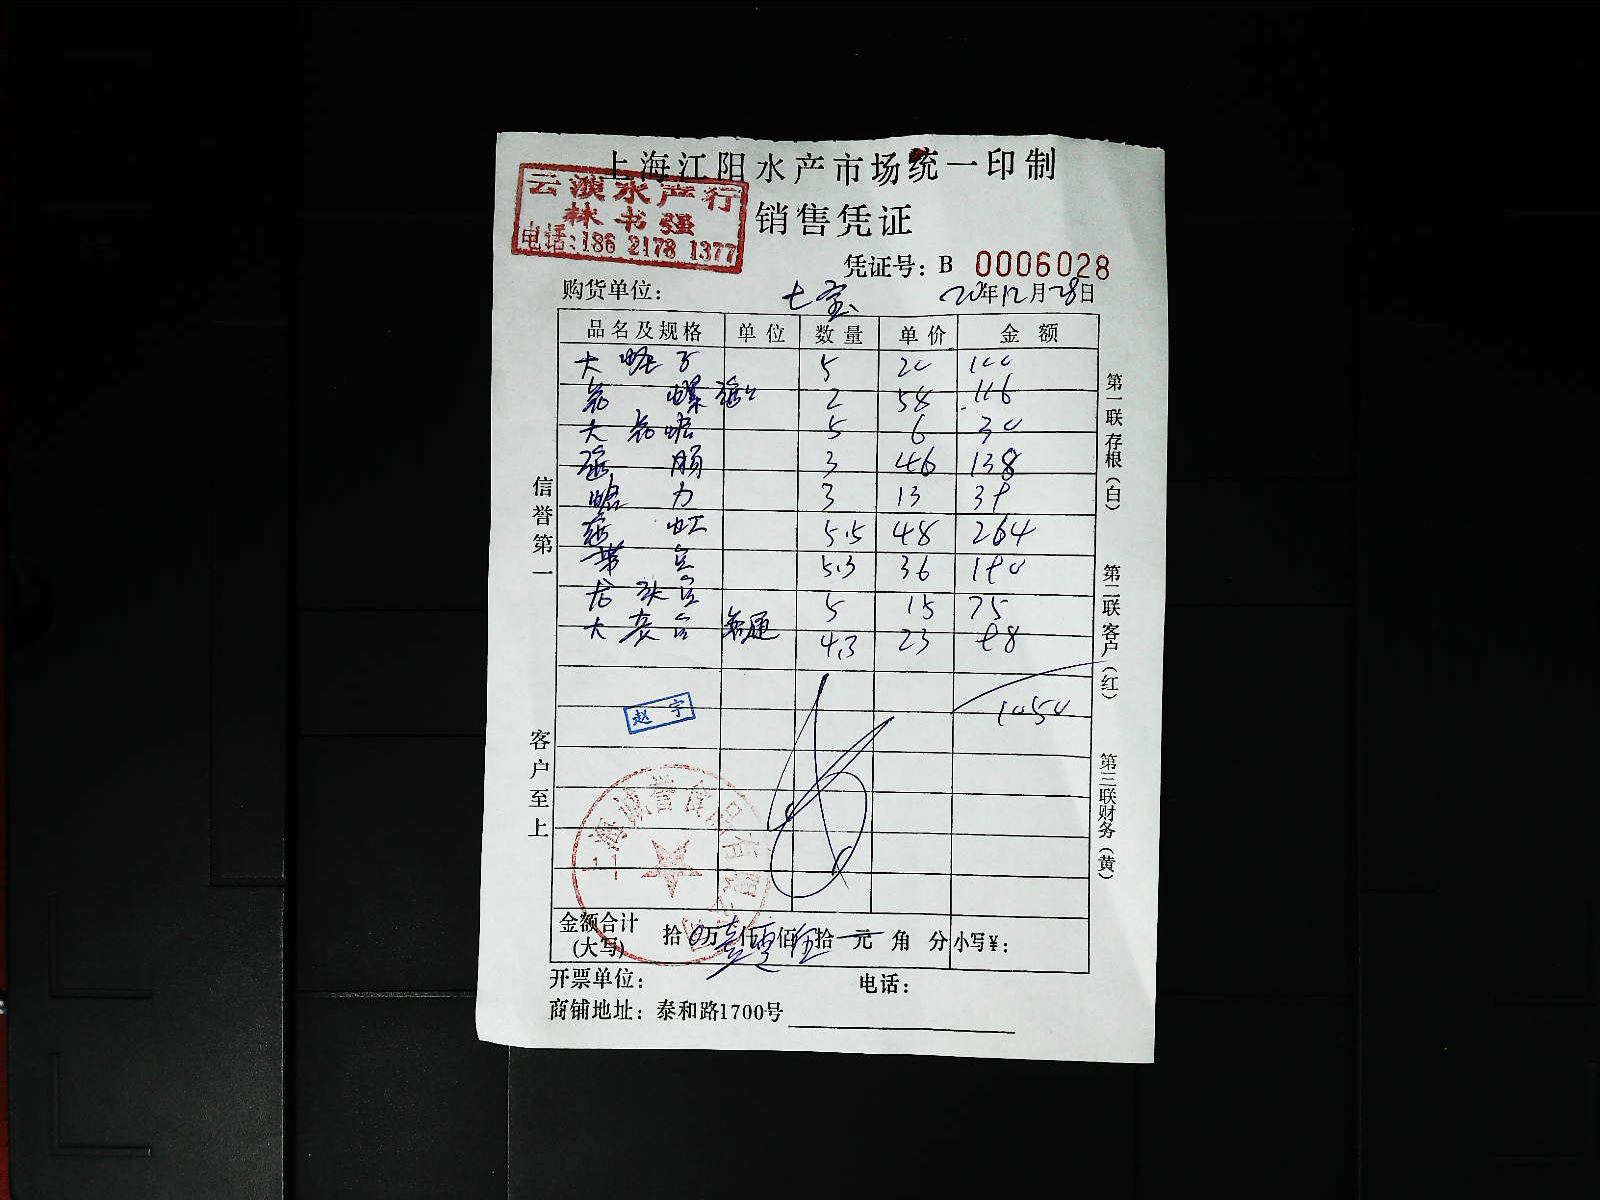 上海江阳水产市场统一印制
云濒水产行
林书强
电话:186 2178 1377
销售凭证
凭证号: B 0006028
购货单位: 七宝 20年12月28日
品名及规格 单位 数量 单价 金额
大蛏子 5 20 100
花螺 2 58 116
大花蛤 5 6 30
3 46 138
蛤力 3 13 39
5.5 48 264
带鱼 5.3 36 190
龙头鱼 5 15 75
4.3 23 98
1050
赵宇
上海诚誉食品有限公司
金额合计
(大写) 拾0万壹仟零佰伍拾元角分 小写¥:
开票单位: 电话:
商铺地址: 泰和路1700号
信誉第一
客户至上
第一联存根(白)
第二联客户(红)
第三联财务(黄)